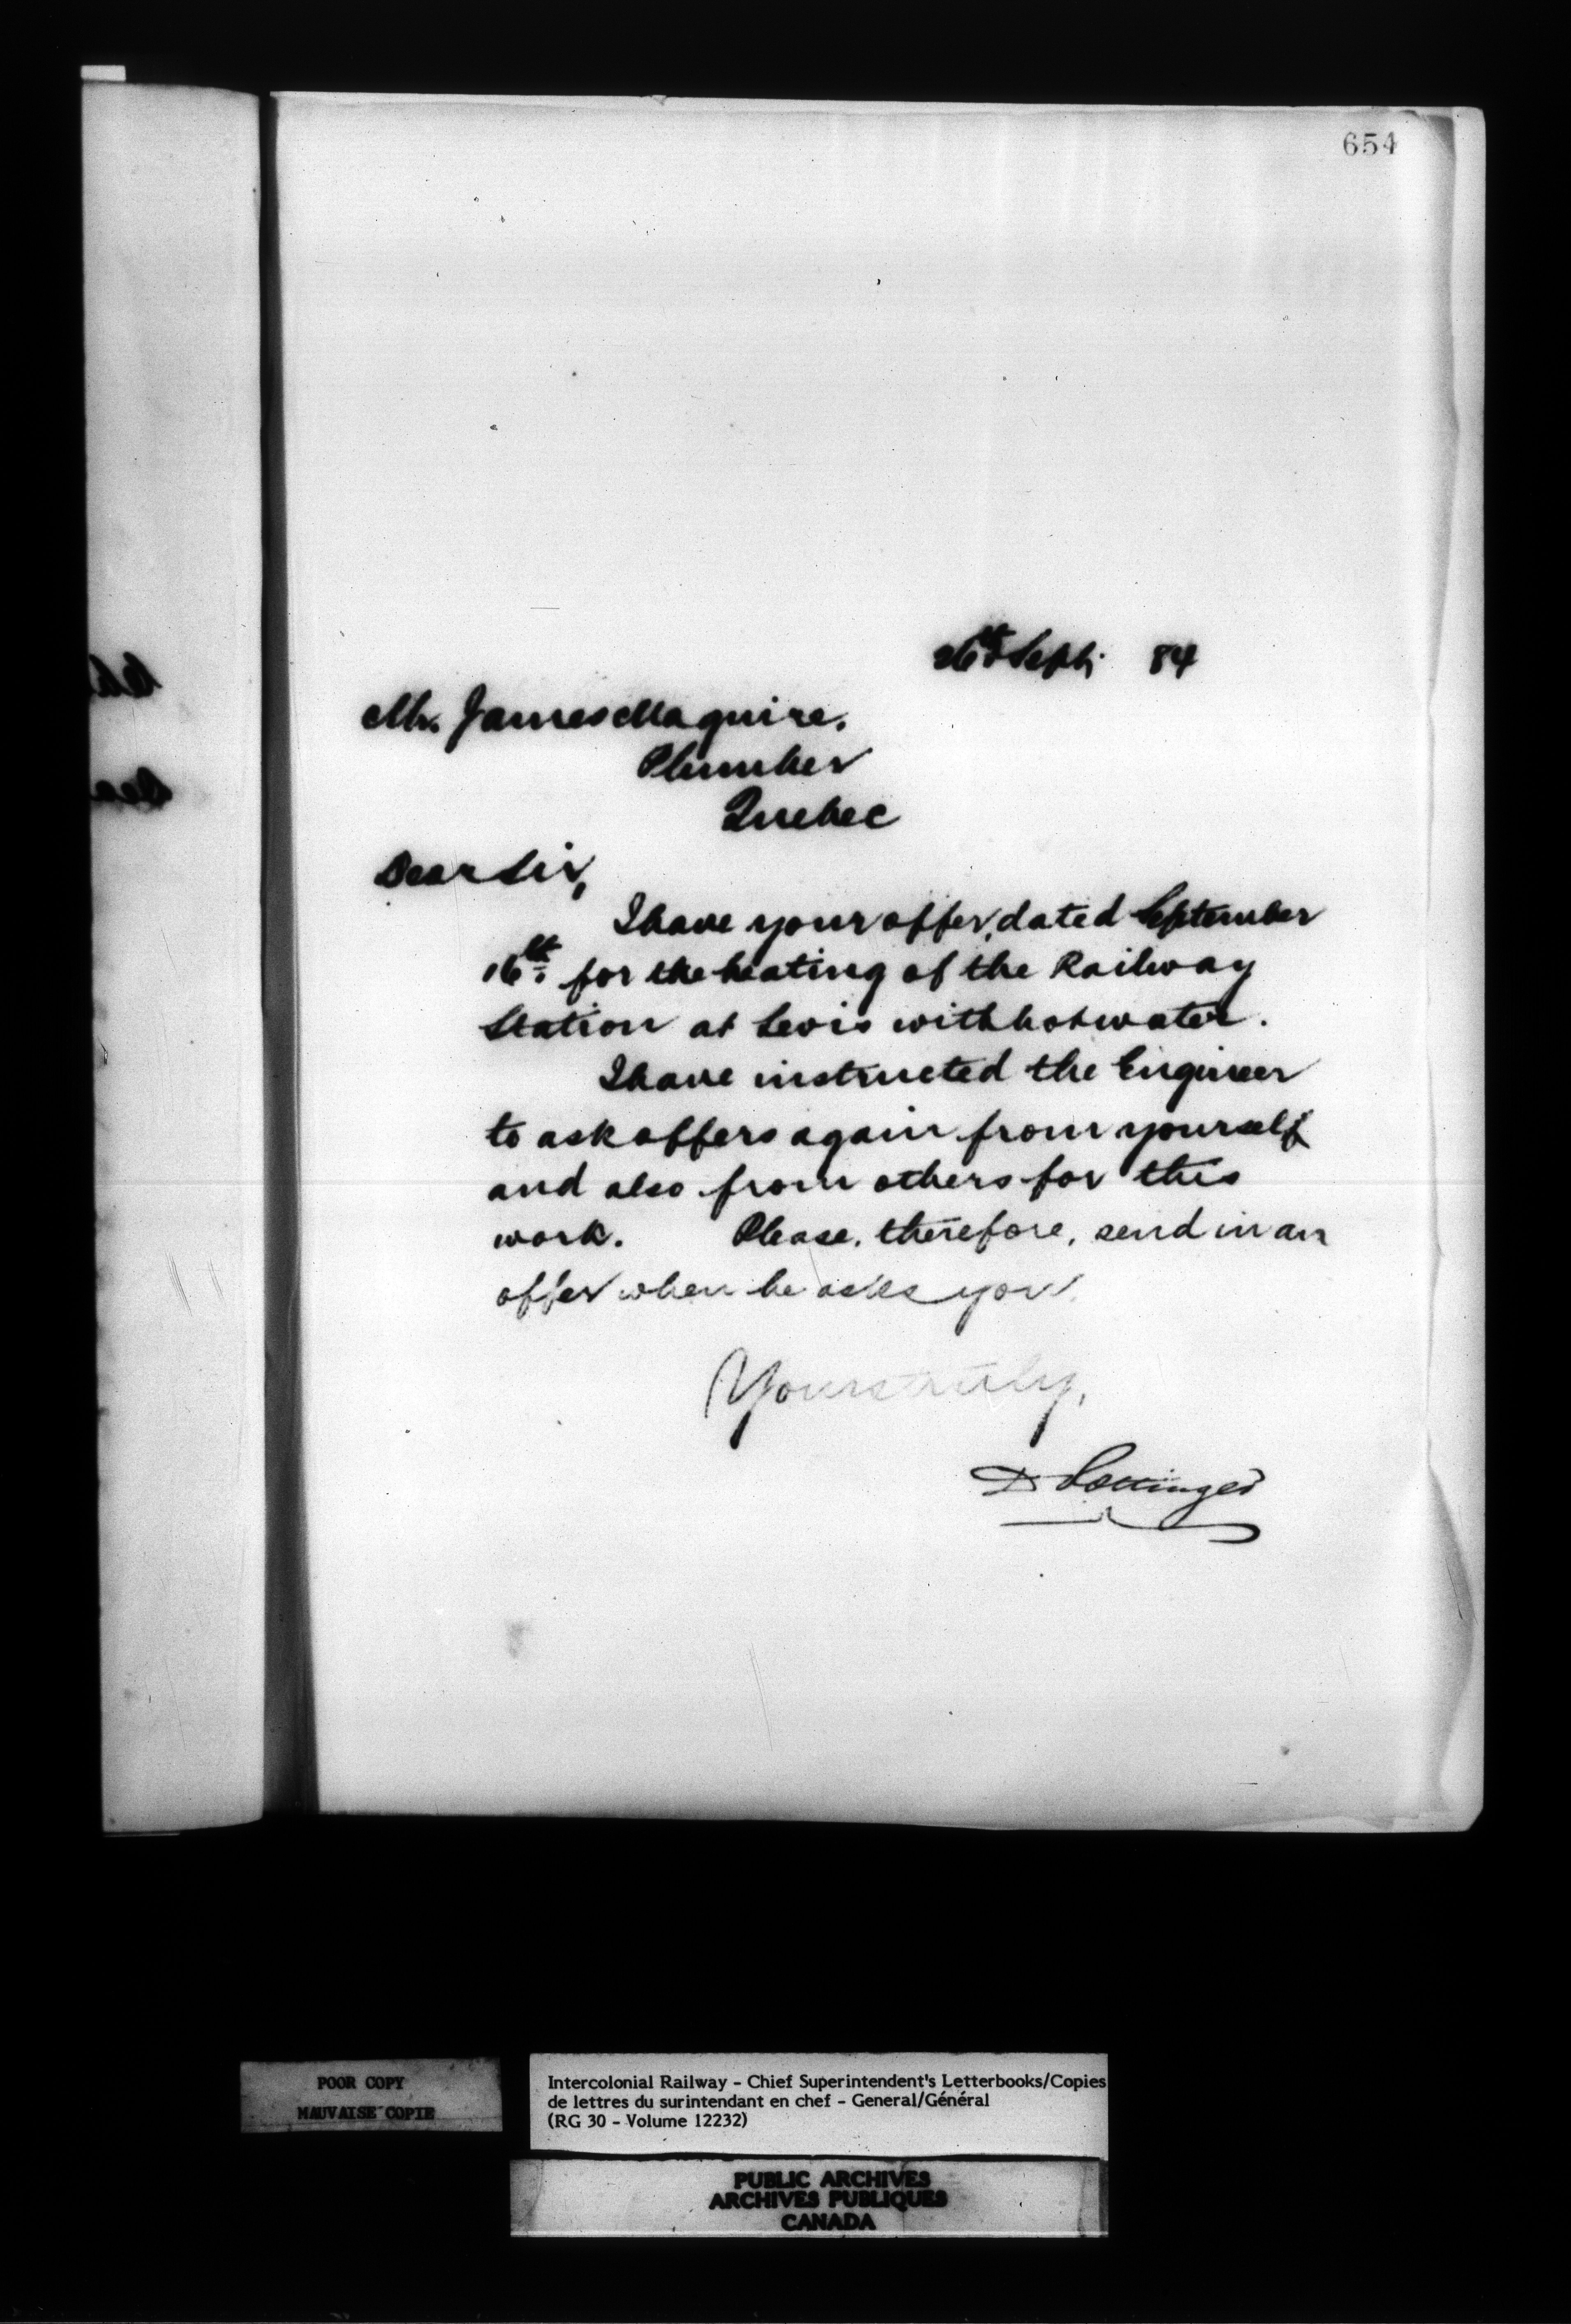 654
26th Sept. 84
Mr. James Maguire.
Plumber
Quebec
Dear Sir,
I have your offer, dated September
16th. for the heating of the Railway
Station at Levis with hot water.
I have instructed the Engineer
to ask offers again from yourself
and also from others for this
work. Please, therefore, send in an
offer when he asks you.
Yours truly,
D Pottinger
POOR COPY
MAUVAISE COPIE
Intercolonial Railway - Chief Superintendent's Letterbooks/Copies
de lettres du surintendant en chef - General/Général
(RG 30 - Volume 12232)
PUBLIC ARCHIVES
ARCHIVES PUBLIQUES
CANADA